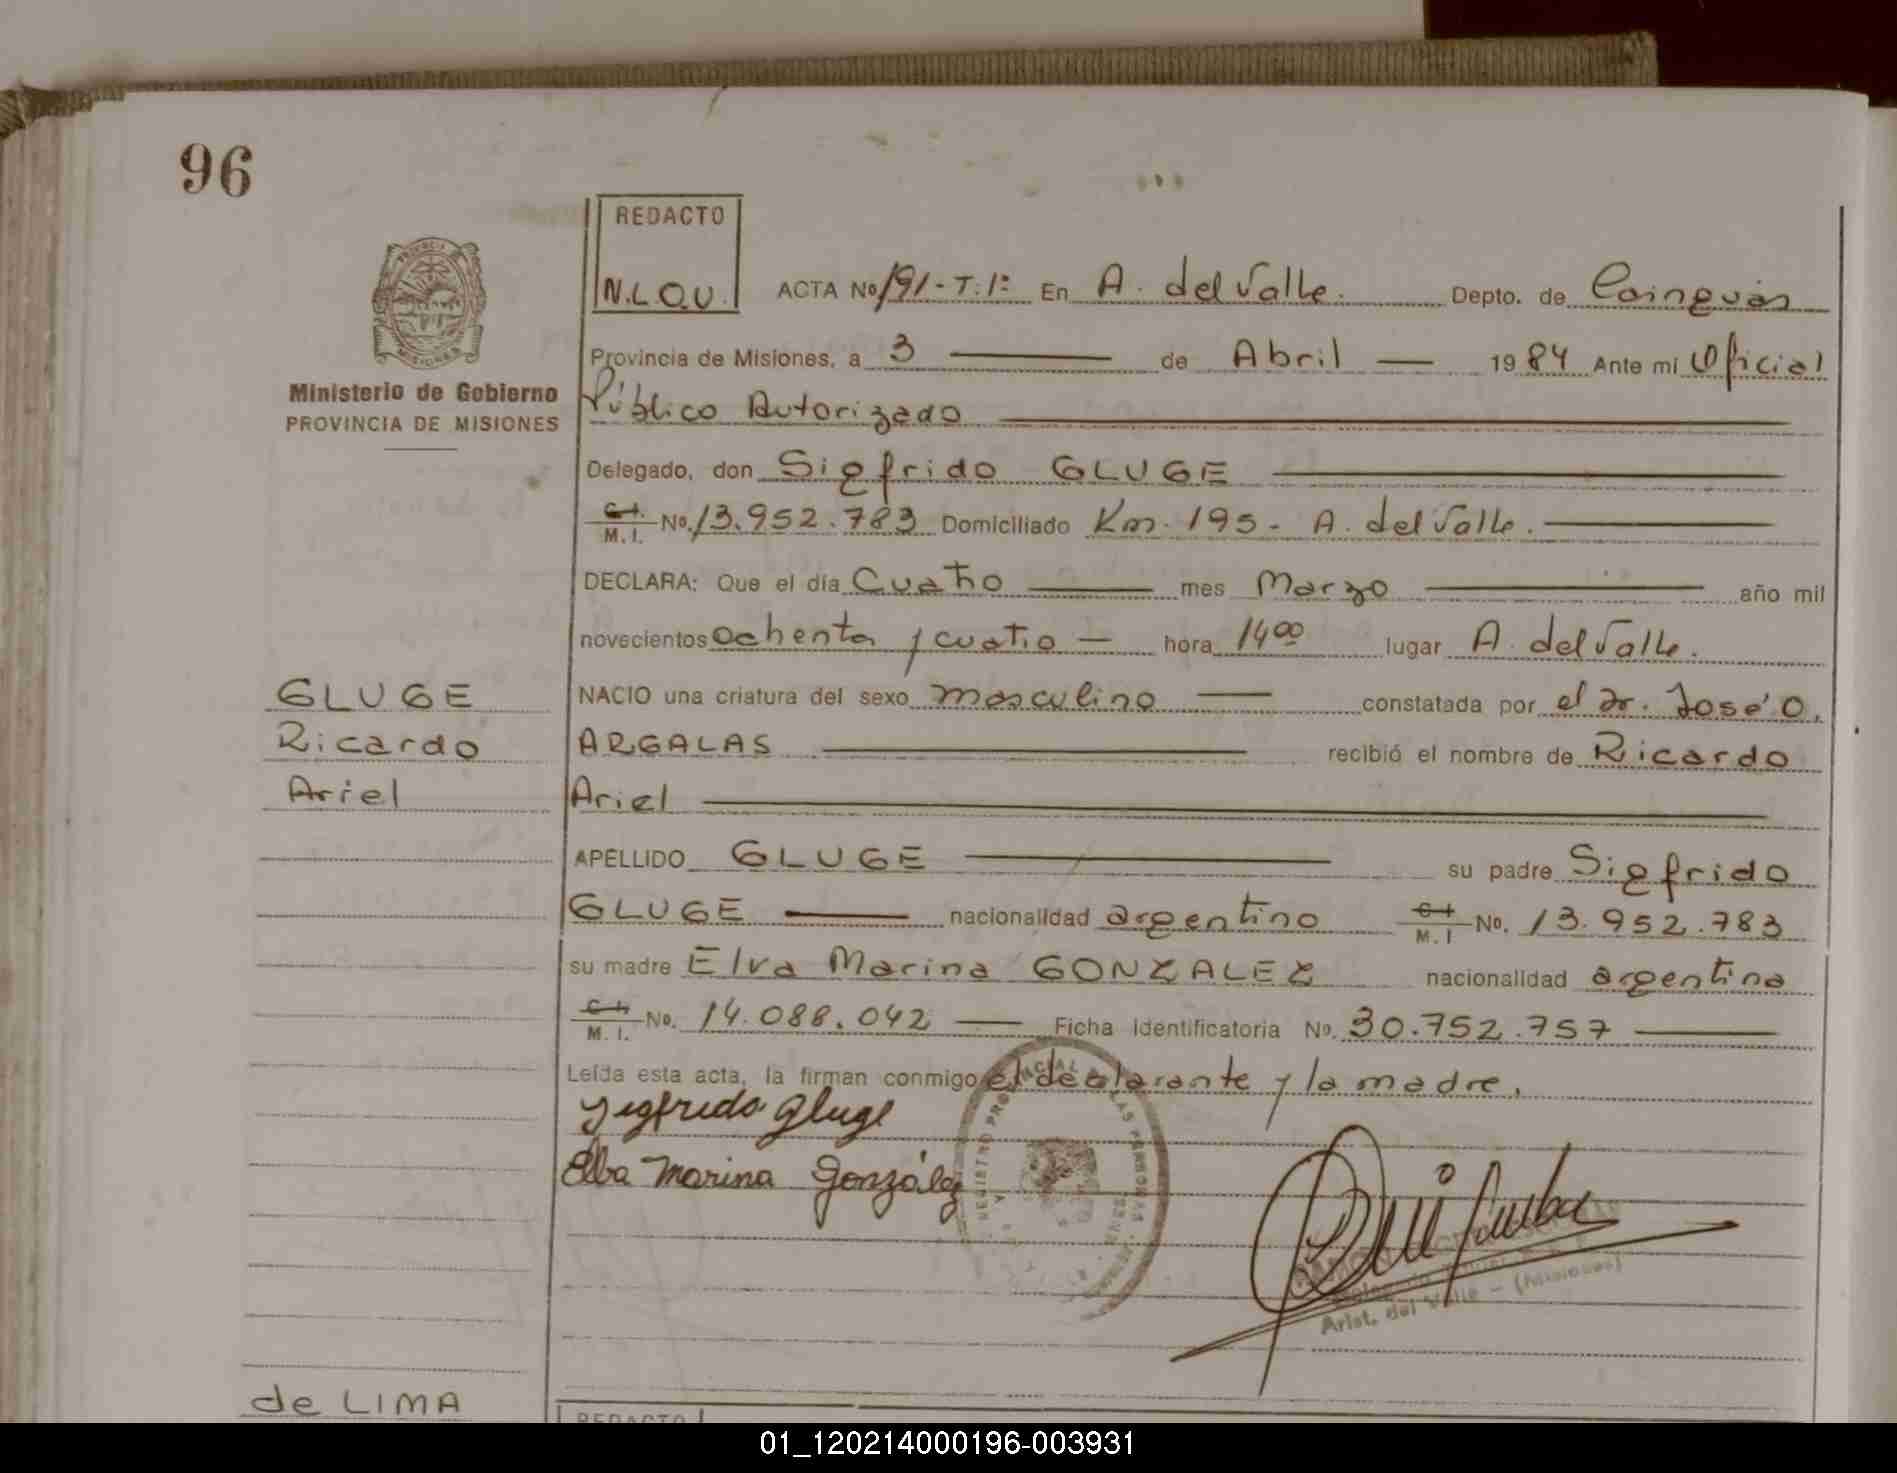 96
REDACTO
N.L.O.U.
ACTA No 191-T:1º En A. del Valle. Depto. de Cainguás
Provincia de Misiones, a 3 de Abril 1984 Ante mi Oficial
Público Autorizado
Ministerio de Gobierno
PROVINCIA DE MISIONES
Delegado, don Sigfrido GLUGE
C.I. M.I. No. 13.952.783 Domiciliado Km. 195- A. del Valle.
DECLARA: Que el día Cuatro mes Marzo año mil
novecientos ochenta y cuatro hora 14 00 lugar A. del Valle.
NACIO una criatura del sexo masculino constatada por el Dr. José O.
ARGALAS recibió el nombre de Ricardo
Ariel
GLUGE
Ricardo
Ariel
APELLIDO GLUGE su padre Sigfrido
GLUGE nacionalidad argentino C.I. M.I No. 13.952.783
su madre Elva Marina GONZALEZ nacionalidad argentina
C.I. M.I. No. 14.088.042 Ficha identificatoria No. 30.752.757
Leída esta acta, la firman conmigo el declarante y la madre.
Sigfrido Gluge
Elba Marina González
REGISTRO PROVINCIAL DE LAS PERSONAS
Arist. del Valle - (Misiones)
de LIMA
REDACTO
01_120214000196-003931